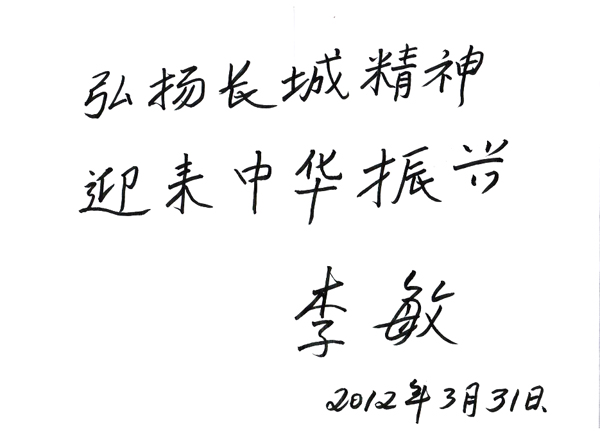 弘扬长城精神
迎来中华振兴
李敏
2012年3月31日